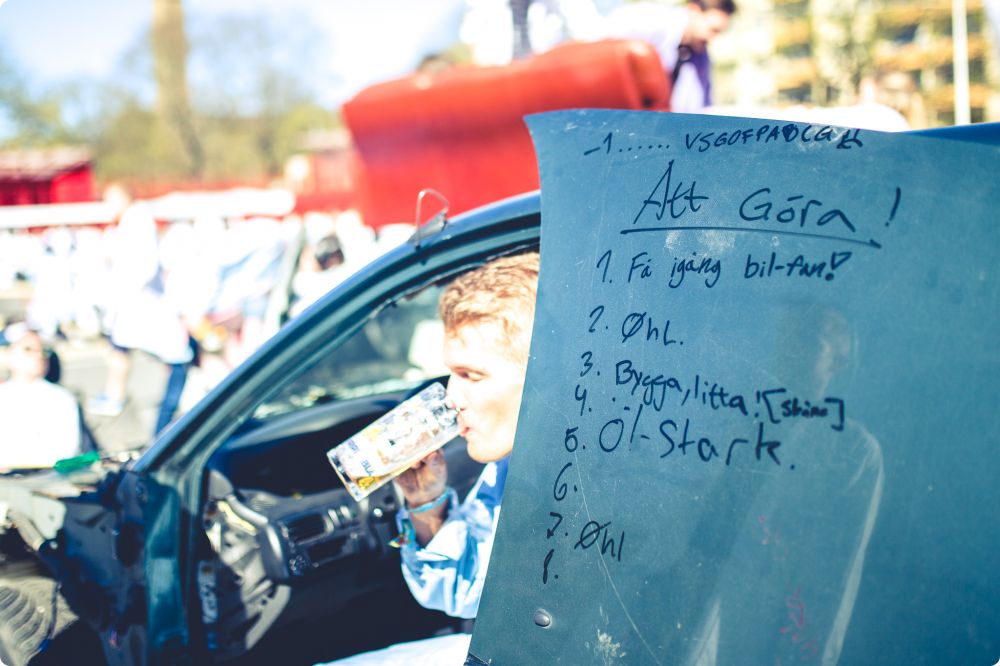 -1...... VSGOFPA
Att Góra!
1. Få igång bil-fan!
2. ØhL.
3. Bygga, litta!
4. [Skåne]
5. Öl-Stark.
6.
7. Øhl
8.